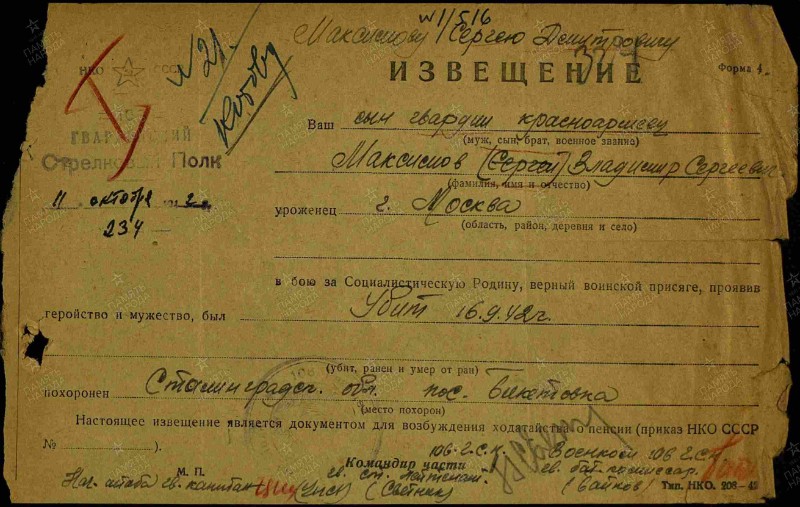 N 11516
Максимову Сергею Дмитровичу
НКО СССР
N 21.
ИЗВЕЩЕНИЕ
Форма 4.
ГВАРДЕЙСКИЙ
Стрелковый Полк
11 октября 1942 г.
234
Ваш сын гвардии красноармеец
(муж, сын, брат, военное звание)
Максимов (Сергей) Владимир Сергеевич
(фамилия, имя и отчество)
уроженец г. Москва
(область, район, деревня и село)
в бою за Социалистическую Родину, верный воинской присяге, проявив
геройство и мужество, был Убит 16.9.42 г.
(убит, ранен и умер от ран)
похоронен Сталинградск. обл. пос. Бекетовка
(место похорон)
Настоящее извещение является документом для возбуждения ходатайства о пенсии (приказ НКО СССР
№ ).
106 Г.С.П. Военком 106 Г.С.П.
М. П. Командир части гв. ст. лейтенант гв. бат. комиссар
Нач. штаба гв. капитан (Светник) (Байков) Тип. НКО. 208—4